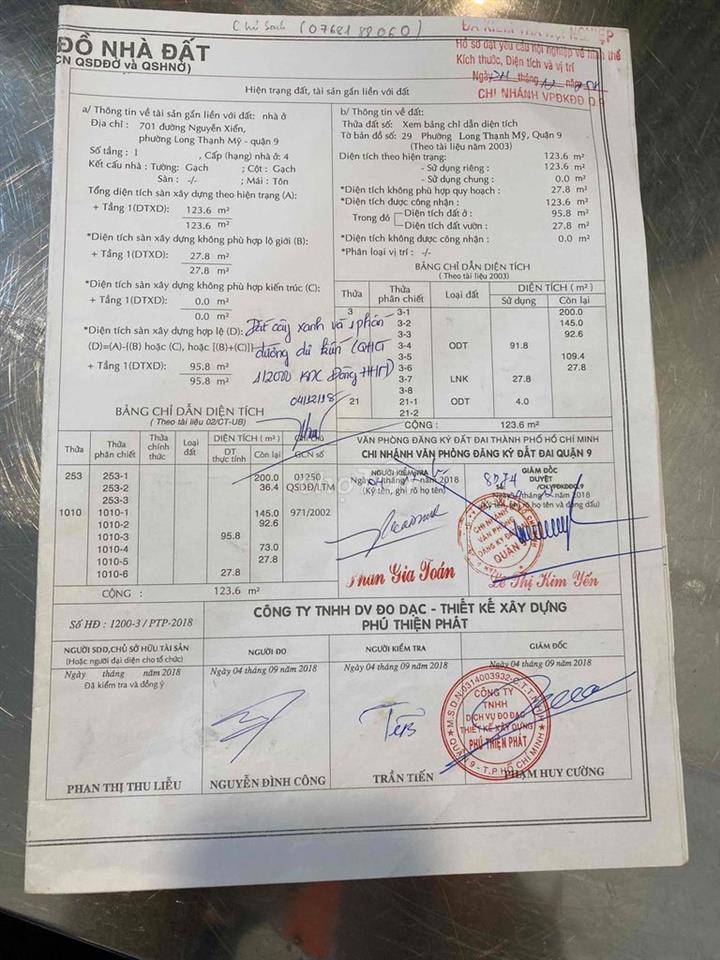 (0768188060)
ĐỒ NHÀ ĐẤT
CN QSDĐỞ và QSHNỞ)
ĐÃ KIỂM TRA NỘI NGHIỆP
Hồ sơ đạt yêu cầu nội nghiệp về hình thể
Kích thước, Diện tích và vị trí
Ngày tháng
CHI NHÁNH VPĐKĐĐ Q.9
Hiện trạng đất, tài sản gắn liền với đất
a/ Thông tin về tài sản gắn liền với đất: nhà ở
Địa chỉ : 701 đường Nguyễn Xiển,
phường Long Thạnh Mỹ - quận 9
Số tầng : 1 , Cấp (hạng) nhà ở: 4
Kết cấu nhà : Tường: Gạch ; Cột : Gạch
Sàn : -/- ; Mái : Tôn
Tổng diện tích sàn xây dựng theo hiện trạng (A):
+ Tầng 1(DTXD): 123.6 m²
123.6 m²
*Diện tích sàn xây dựng không phù hợp lộ giới (B):
+ Tầng 1(DTXD): 27.8 m²
27.8 m²
*Diện tích sàn xây dựng không phù hợp kiến trúc (C):
+ Tầng 1(DTXD): 0.0 m²
0.0 m²
*Diện tích sàn xây dựng hợp lệ (D):
(D)=(A)-[(B) hoặc (C), hoặc [(B)+(C)]]
+ Tầng 1(DTXD): 95.8 m²
95.8 m²
Đất cây xanh và 1 phần
đường dự kiến (QHCT
1/2000 KDC Đông
04/12/18
b/ Thông tin về đất:
Thửa đất số: Xem bảng chỉ dẫn diện tích
Tờ bản đồ số: 29 Phường Long Thạnh Mỹ, Quận 9
(Theo tài liệu năm 2003)
Diện tích theo hiện trạng: 123.6 m²
- Sử dụng riêng: 123.6 m²
- Sử dụng chung: 0.0 m²
*Diện tích không phù hợp quy hoạch : 27.8 m²
*Diện tích được công nhận : 123.6 m²
Trong đó Diện tích đất ở : 95.8 m²
Diện tích đất vườn : 27.8 m²
*Diện tích không được công nhận : 0.0 m²
*Phân loại vị trí : -/-
BẢNG CHỈ DẪN DIỆN TÍCH
( Theo tài liệu 2003)
Thửa Thửa phân chiết Loại đất DIỆN TÍCH ( m² )
Sử dụng Còn lại
3 3-1 200.0
3-2 145.0
3-3 92.6
3-4 ODT 91.8
3-5 109.4
3-6 27.8
3-7 LNK 27.8
3-8
21 21-1 ODT 4.0
21-2
CỘNG : 123.6 m²
BẢNG CHỈ DẪN DIỆN TÍCH
( Theo tài liệu 02/CT-UB)
Thửa Thửa phân chiết Thửa chính thức Loại đất DIỆN TÍCH ( m² )
DT thực tính Còn lại GCN số
253 253-1 200.0 01250
253-2 36.4 QSDĐ/LTM
253-3
1010 1010-1 145.0 971/2002
1010-2 92.6
1010-3 95.8
1010-4 73.0
1010-5 27.8
1010-6 27.8
CỘNG : 123.6 m²
VĂN PHÒNG ĐĂNG KÝ ĐẤT ĐAI THÀNH PHỐ HỒ CHÍ MINH
CHI NHÁNH VĂN PHÒNG ĐĂNG KÝ ĐẤT ĐAI QUẬN 9
NGƯỜI KIỂM TRA
Ngày 04 tháng năm 2018
(Ký tên, ghi rõ họ tên)
Phan Gia Toán
GIÁM ĐỐC
DUYỆT
8274 /CN.VPĐKĐĐ.Q.9
năm 2018
CHI NHÁNH
VĂN PHÒNG
ĐĂNG KÝ ĐẤT ĐAI
QUẬN 9
Lê Thị Kim Yến
Số HĐ : 1200-3 / PTP-2018
CÔNG TY TNHH DV ĐO ĐẠC - THIẾT KẾ XÂY DỰNG
PHÚ THIỆN PHÁT
NGƯỜI SDĐ,CHỦ SỞ HỮU TÀI SẢN
(Hoặc người đại diện cho tổ chức)
Ngày tháng năm 2018
Đã kiểm tra và đồng ý
PHAN THỊ THU LIỄU
NGƯỜI ĐO
Ngày 04 tháng 09 năm 2018
NGUYỄN ĐÌNH CÔNG
NGƯỜI KIỂM TRA
Ngày 04 tháng 09 năm 2018
TRẦN TIẾN
GIÁM ĐỐC
Ngày 04 tháng 09 năm 2018
M.S.D.N:0314003932-C.T.T.N.H.H
CÔNG TY
TNHH
DỊCH VỤ ĐO ĐẠC
THIẾT KẾ XÂY DỰNG
PHÚ THIỆN PHÁT
QUẬN 9 - T.P HỒ CHÍ MINH
PHẠM HUY CƯỜNG